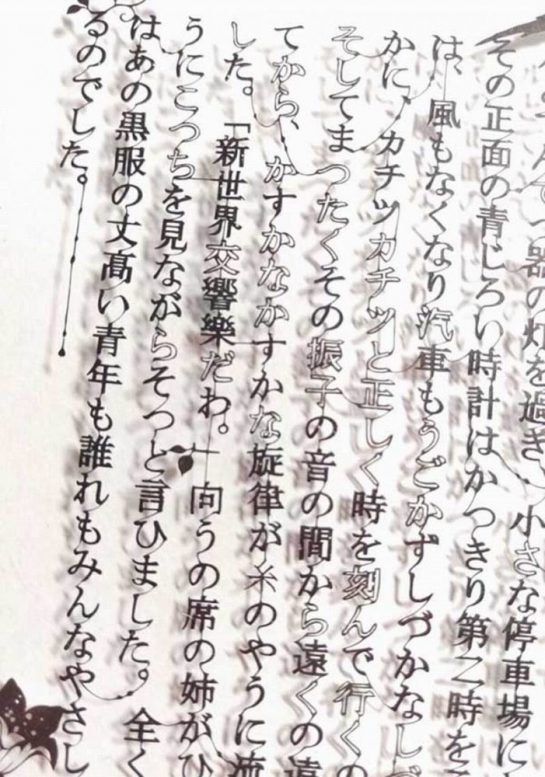 てつ器の灯を過ぎ、小さな停車場に
その正面の青じろい時計はかつきり第二時を
は、風もなくなり汽車もうごかずしづかな
かに、カチツカチツと正しく時を刻んで行くの
そしてまつたくその振子の音の間から遠くの遠
てから、かすかなかすかな旋律が糸のやうに流
した。「新世界交響樂だわ。」向うの席の姉がひ
うにこつちを見ながらそつと言ひました。全く
はあの黒服の丈髙い青年も誰れもみんなやさし
るのでした。